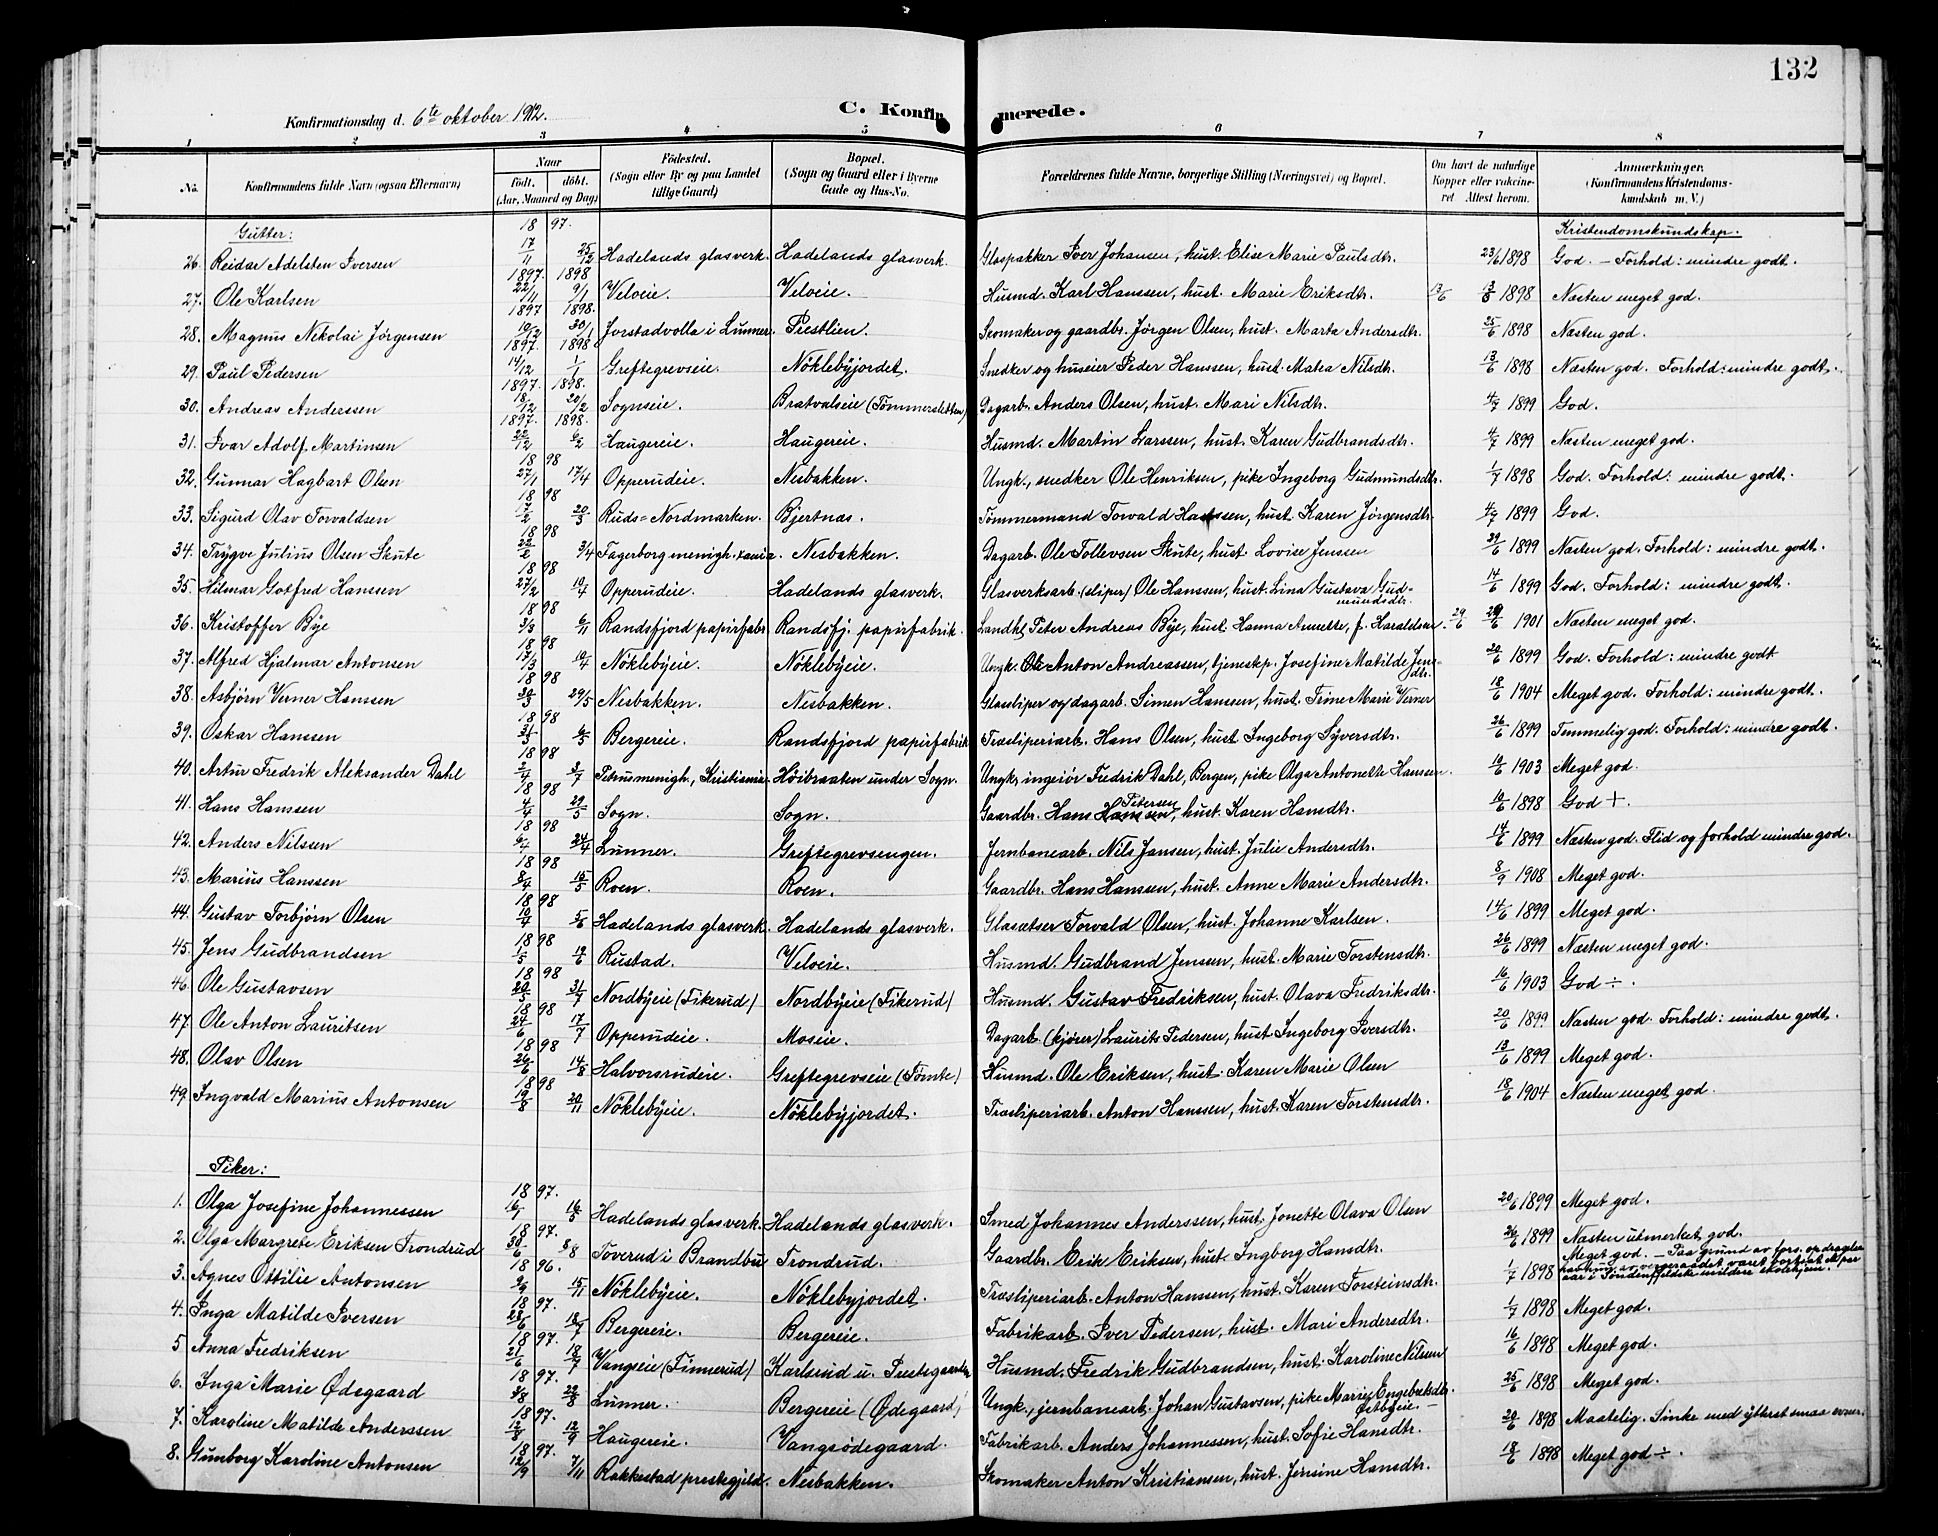 132
C. Konfirmerede.
Konfirmationsdag d. 6te oktober 1912.
1 2 3 4 5 6 7 8
No. Konfirmandens fulde Navn (ogsaa Efternavn) Naar født. døbt. (Aar, Maaned og Dag) Fødested. (Sogn eller By og paa Landet tillige Gaard) Bopæl. (Sogn og Gaard eller i Byerne Gade og Hus-No. Forældrenes fulde Navne, borgerlige Stilling (Næringsvei) og Bopæl. Om havt de naturlige Kopper eller vakcineret Attest herom. Anmærkninger. (Konfirmandens Kristendomskundskab m. V.)
Gutter: 18 97. Kristendomskundskap.
26. Reidar Adelsten Iversen 17/11 25/12 Hadelands glasverk. Hadelands glasverk. Glaspakker Iver Johansen, hust. Elise Marie Paulsdtr. 23/6 1898 God. – Forhold: mindre godt.
27. Ole Karlsen 1897. 22/11 1898 9/1 Veloeie. Veloeie. Husmd. Karl Hanssen, hust. Marie Eriksdtr. 13/6 1898 Næsten meget god.
28. Magnus Nikolai Jørgensen 1897 10/12 1898. 30/1 Jorstadvolla i Lunner. Prestlien. Skomaker og gaardbr. Jørgen Olsen, hust. Marte Andersdtr. 25/6 1898 Næsten god.
29. Paul Pedersen 1897. 14/12 1898 1/1 Greftegrevseie. Nöklebyjordet. Snedker og huseier Peder Hanssen, hust. Matea Nilsdtr. 13/6 1898 Næsten god. Forhold: mindre godt.
30. Andreas Anderssen 1897. 18/12 1898. 20/2 Sognseie. Bratvalseie (Tömmersletten) Dagarb. Anders Olsen, hust. Mari Nilsdtr. 4/7 1899 God.
31. Ivar Adolf Martinsen 1897. 22/12 1898. 6/2 Haugereie. Haugereie. Husmd. Martin Larssen, hust. Karen Gudbrandsdtr. 4/7 1899 Næsten meget god.
32. Gunnar Hagbart Olsen 18 98 27/1 17/4 Opperudeie. Nesbakken. Ungk., snedker Ole Henriksen, pike Ingeborg Gudmundsdtr. 1/7 1898 God. Forhold: mindre godt.
33. Sigurd Olav Torvaldsen 18 98 17/2 20/3 Ruds=Nordmarken. Bjertnæs. Tømmermand Torvald Hanssen, hust. Karen Jörgensdtr. 4/7 1899 God.
34. Trygve Julius Olsen Skute 18 98 22/2 3/4 Fagerborg menigh. Xania. Nesbakken. Dagarb. Ole Tollevsen Skute, hust. Lovise Jenssen 29/6 1899 Næsten god. Forhold: mindre godt.
35. Hilmar Gotfred Hanssen 18 98 27/2 10/4 Opperudeie. Hadelands glasverk. Glasverksarb. (sliper) Ole Hanssen, hust. Lina Gustava Gudmundsdtr. 14/6 1899 God. Forhold: mindre godt.
36. Kristoffer Bye 18 98 3/3 6/11 Randsfjord papirfabr. Randsfj. papirfabrik. Landh. Peter Andreas Bye, hust. Hanna Annette, f. Haraldsen. 29/6 1901 Næsten meget god.
37. Alfred Hjalmar Antonsen 18 98 17/3 10/4 Nöklebyeie. Nöklebyeie. Ungk. Ole Anton Andreassen, tjenestep. Josefine Matilde Jensdtr. 20/6 1899 God. Forhold: mindre godt
38. Asbjörn Verner Hanssen 18 98 20/3 29/5 Nesbakken. Nesbakken. Glassliper og dagarb. Simen Hanssen, hust. Trine Marie Verner 18/6 1904 Meget god. Forhold: mindre godt.
39. Oskar Hanssen 18 98 31/3 6/5 Bergereie. Randsfjord papirfabrik Træsliperiarb. Hans Olsen, hust. Ingeborg Syversdtr. 26/6 1899 Temmelig god. Forhold: mindre godt.
40. Artur Fredrik Aleksander Dahl 18 98 2/4 3/7 Petrusmenigh., Kristiania Höibraaten under Sogn. Ungk., ingeiör Fredrik Dahl, Bergen, pike Olga Antonette Hanssen. 10/6 1903 Meget god.
41. Hans Hanssen 18 98 4/4 29/5 Sogn. Sogn. Gaardbr. Hans Hanssen Petersen, hust. Karen Hansdtr. 10/6 1898 God +.
42. Anders Nilsen 18 98 6/4 24/4 Lunner. Greftegrevsengen. Jernbanearb. Nils Jansen, hust. Julie Andersdtr. 14/6 1899 Næsten god. Flid og forhold mindre god.
43. Marius Hanssen 18 98 8/4 15/5 Roen. Roen. Gaardbr. Hans Hanssen, hust. Anne Marie Andersdtr. 8/9 1908 Meget god.
44. Gustav Torbjörn Olsen 18 98 10/4 5/6 Hadelands glasverk. Hadelands glasverk. Glasætser Torvald Olsen, hust. Johanne Karlsen. 14/6 1899 Meget god.
45. Jens Gudbrandsen 18 98 1/5 12/6 Rustad. Veloeie. Husmd. Gudbrand Jenssen, hust. Marie Torstensdtr. 26/6 1899 Næsten meget god.
46. Ole Gustavsen 18 98 20/5 31/7 Nordbyeie (Fikerud) Nordbyeie (Fikerud) Husmd. Gustav Fredriksen, hust. Olava Fredriksdtr. 16/6 1903 God ÷.
47. Ole Anton Lauritsen 18 98 24/6 17/7 Opperudeie. Moseie. Dagarb. (kjörer) Laurits Pedersen, hust. Ingeborg Iversdtr. 20/6 1899 Næsten god. Forhold: mindre godt.
48. Olav Olsen 18 98 26/6 14/8 Halvorsrudeie. Greftegrevseie (Tömte) Husmd. Ole Eriksen, hust. Karen Marie Olsen 13/6 1899 Meget god.
49. Ingvald Marius Antonsen 18 98 19/8 20/11 Nöklebyeie. Nöklebyjordet. Træsliperiarb. Anton Hanssen, hust. Karen Torstensdtr. 18/6 1904 Næsten meget god.
Piker:
1. Olga Josefine Johannessen 18 97. 16/1 16/5 Hadelands glasverk. Hadelands glasverk. Smed Johannes Anderssen, hust. Jonette Olava Olsen 20/6 1899 Meget god.
2. Olga Margrete Eriksen Trondrud 18 97. 30/6 8/8 Toverud i Brandbu Trondrud. Gaardbr. Erik Eriksen, hust. Ingborg Hansdtr. 26/6 1899 Næsten utmerket god.
3. Agnes Ottilie Antonsen 18 96. 9/9 15/11 Nöklebyeie. Nöklebyjordet. Træsliperiarb. Anton Hanssen, hust. Karen Torsteinsdtr. 1/7 1898 Meget god. – Paa grund av fors. opdragelse paa hug. av vergeraadet været bortsat et par aar i Söndenfjeldske mildere skolehjem.
4. Inga Matilde Iversen 18 97. 28/6 18/7 Bergereie. Bergereie. Fabrikarb. Iver Pedersen, hust. Mari Andersdtr. 1/7 1898 Meget god.
5 Anna Fredriksen 18 97. 21/6 18/7 Vangseie (Finnerud) Karlsrud u. Prestegaarden Husmd. Fredrik Gudbrandsen, hust. Karoline Nilsen 16/6 1898 Meget god.
6. Inga Marie Ødegaard 18 97. 4/8 22/8 Lunner. Bergereie (Ødegaard) Ungk., jernbanearb. Johan Gustavsen, pike Marie Engebretsdtr. 25/6 1898 Meget god.
7. Karoline Matilde Anderssen 18 97. 12/9 Haugereie. Vangsödegaard. Fabrikarb. Anders Johannessen, hust. Sofie Hansdtr. 20/6 1898 Maatelig. Sinke med ytterst smaa evner.
8. Gunborg Karoline Antonsen 18 97. 12/9 7/11 Rakkestad prestegjeld. Nesbakken. Skomaker Anton Kristiansen, hust. Jensine Hansdtr. 18/6 1898 Meget god ÷.